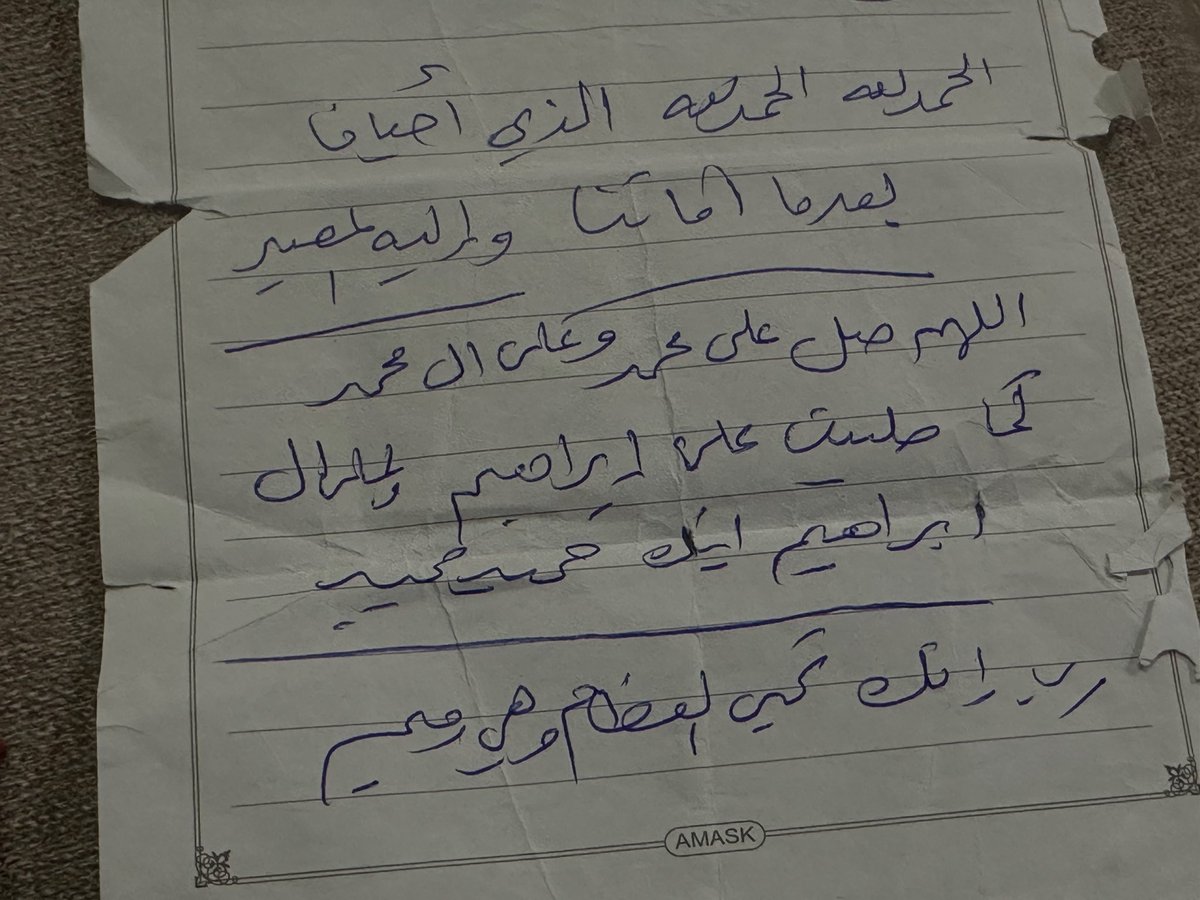 الحمد لله الحمد لله الذي أحيانا
بعدما أماتنا وإليه المصير
اللهم صل على محمد وعلى ال محمد
كما صليت على إبراهيم وعلى ال
ابراهيم انك حميد مجيد
رب إنك تحيي العظام وهي رميم
AMASK